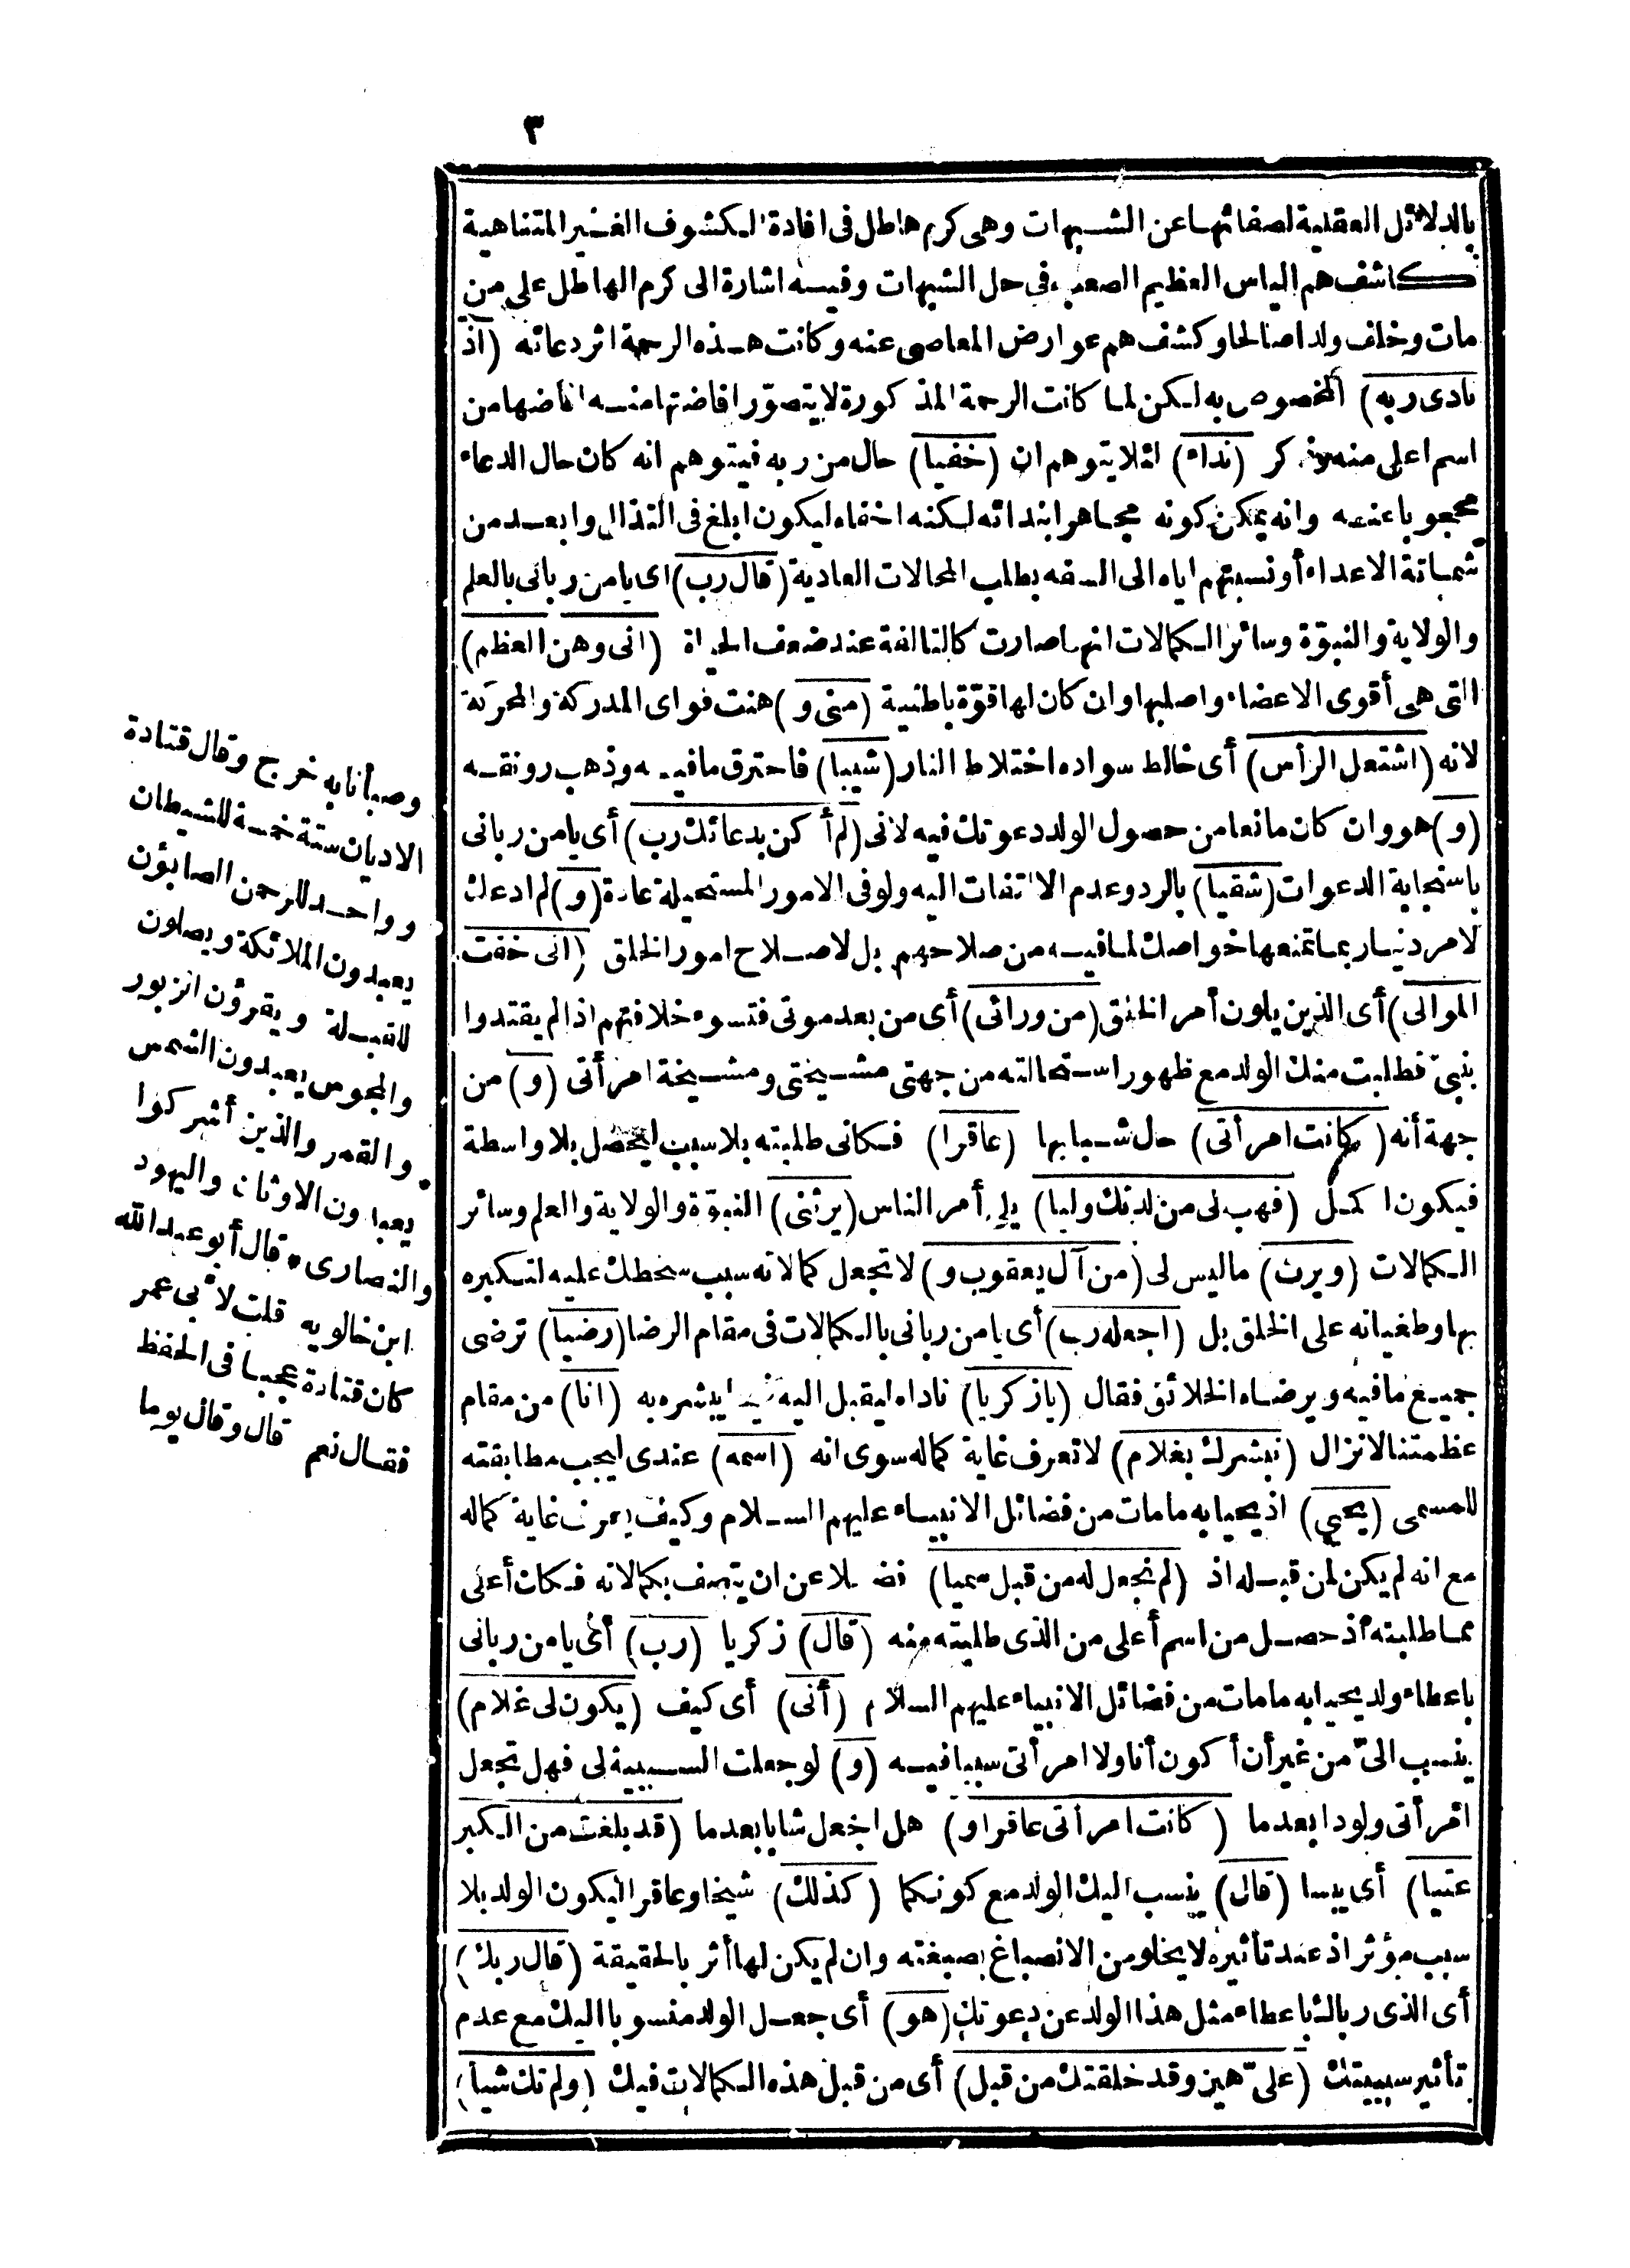 ٣
بالدلائل العقلية لصفائها عن الشبهات وهى كريم هاطل فى افادة الكشوف الغير المتناهية
كاشف هم الياس العظيم الصعب فى حل الشبهات وفيه اشارة الى كرم الهاطل على من
مات وخلف ولدا صالحا وكشف هم عوارض المعاصى عنه وكانت هذه الرحمة اثر دعائه (اذ
نادى ربه) المخصوص به لكن لما كانت الرحمة المذكورة لا يتصور افاضتها منه افاضها من
اسم اعلى منه كر (نداء) لئلا يتوهم ان (خفيا) حال من ربه فيتوهم انه كان حال الدعاء
محجوبا عنه وانه يمكن كونه مجاهرا بندائه لكنه اخفاه ليكون ابلغ فى التذلل وابعد من
شماتة الاعداء أو نسبتهم اياه الى السفه بطلب المحالات العادية (قال رب) اى يا من ربانى بالعلم
والولاية والنبوّة وسائر الكمالات انها صارت كالتالفة عند ضعف الحياة (انى وهن العظم)
التى هى أقوى الاعضاء واصلبها وان كان لها قوّة باطنية (منى و) هنت قواى المدركة والمحركة
لانه (اشتعل الرأس) أى خالط سواده اختلاط النار (شيبا) فاحترق ما فيه وذهب رونقه
(و) هو وان كان مانعا من حصول الولد دعوتك فيه لانى (لم أكن بدعائك رب) أى يا من ربانى
باستجابة الدعوات (شقيا) بالرد وعدم الالتفات اليه ولو فى الامور المستحيلة عادة (و) لم ادعك
لامر دنيا ربما تمنعها خواصك لما فيه من صلاحهم بل لاصلاح امور الخلق (انى خفت
الموالى) أى الذين يلون أمر الخلق (من ورائى) أى من بعد موتى فتسوء خلافتهم اذا لم يقتدوا
بنبىّ فطلبت منك الولد مع ظهور استحالته من جهتى مشيختى ومشيخة امرأتى (و) من
جهة أنه (كانت امرأتى) حال شبابها (عاقرا) فكانى طلبته بلا سبب ليحصل بلا واسطة
فيكون اكمل (فهب لى من لدنك وليا) يلى أمر الناس (يرثنى) النبوّة والولاية والعلم وسائر
الكمالات (ويرث) ما ليس لى (من آل يعقوب و) لا تجعل كمالاته سبب سخطك عليه لتكبره
بها وطغيانه على الخلق بل (اجعله رب) أى يا من ربانى بالكمالات فى مقام الرضا (رضيا) ترضى
جميع ما فيه ويرضاه الخلائق فقال (يا زكريا) ناداه ليقبل اليه يبشره به (انا) من مقام
عظمتنا لانزال (نبشرك بغلام) لا تعرف غاية كماله سوى انه (اسمه) عندى ليجب مطابقته
للمسمى (يحيى) اذ يحيا به ما مات من فضائل الانبياء عليهم السلام وكيف يعرف غاية كماله
مع انه لم يكن لمن قبله اذ (لم نجعل له من قبل سميا) فضلا عن ان يتصف بكمالاته فكان أعلى
مما طلبته اذ حصل من اسم أعلى من الذى طلبته منه (قال) زكريا (رب) أى يا من ربانى
باعطاء ولد يحيا به ما مات من فضائل الانبياء عليهم السلام (أنى) أى كيف (يكون لى غلام)
ينسب الىّ من غير أن أكون أنا ولا امرأتى سببا فيه (و) لو جعلت السببية لى فهل تجعل
امرأتى ولودا بعدما (كانت امرأتى عاقرا و) هل اجعل شابا بعدما (قد بلغت من الكبر
عتيا) أى يبسا (قال) ينسب اليك الولد مع كونكما (كذلك) شيخا وعاقرا ليكون الولد بلا
سبب مؤثر اذ عند تأثيره لا يخلو من الانصباغ بصبغته وان لم يكن لها أثر بالحقيقة (قال ربك)
أى الذى رباك باعطاء مثل هذا الولد عن دعوتك (هو) أى جعل الولد منسوبا اليك مع عدم
تأثير سببيتك (علىّ هين وقد خلقتك من قبل) أى من قبل هذه الكمالات فيك (ولم تك شيأ)
وصبأنا به خرج وقال قتادة
الاديان ستة خمسة للشيطان
وواحد للرحمن الصابؤن
يعبدون الملائكة ويصلون
للقبلة ويقرؤن الزبور
والمجوس يعبدون الشمس
والقمر والذين أشركوا
يعبدون الاوثان واليهود
والنصارى * قال أبو عبد الله
ابن خالويه قلت لأبى عمر
كان قتادة عجبا فى الحفظ
فقال نعم قال وقال يوما